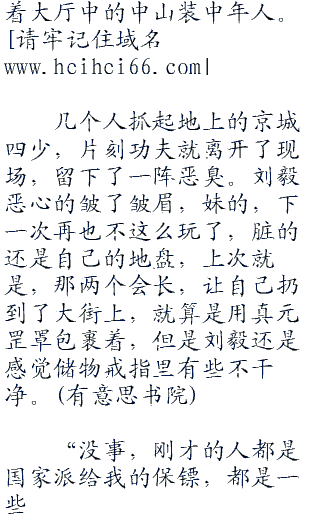 着大厅中的中山装中年人。
[请牢记住域名
www.hcihci66.com|
几个人抓起地上的京城
四少，片刻功夫就离开了现
场，留下了一阵恶臭。刘毅
恶心的皱了皱眉，妹的，下
一次再也不这么玩了，脏的
还是自己的地盘，上次就
是，那两个会长，让自己扔
到了大街上，就算是用真元
罡罩包裹着，但是刘毅还是
感觉储物戒指里有些不干
净。(有意思书院)
“没事，刚才的人都是
国家派给我的保镖，都是一
些